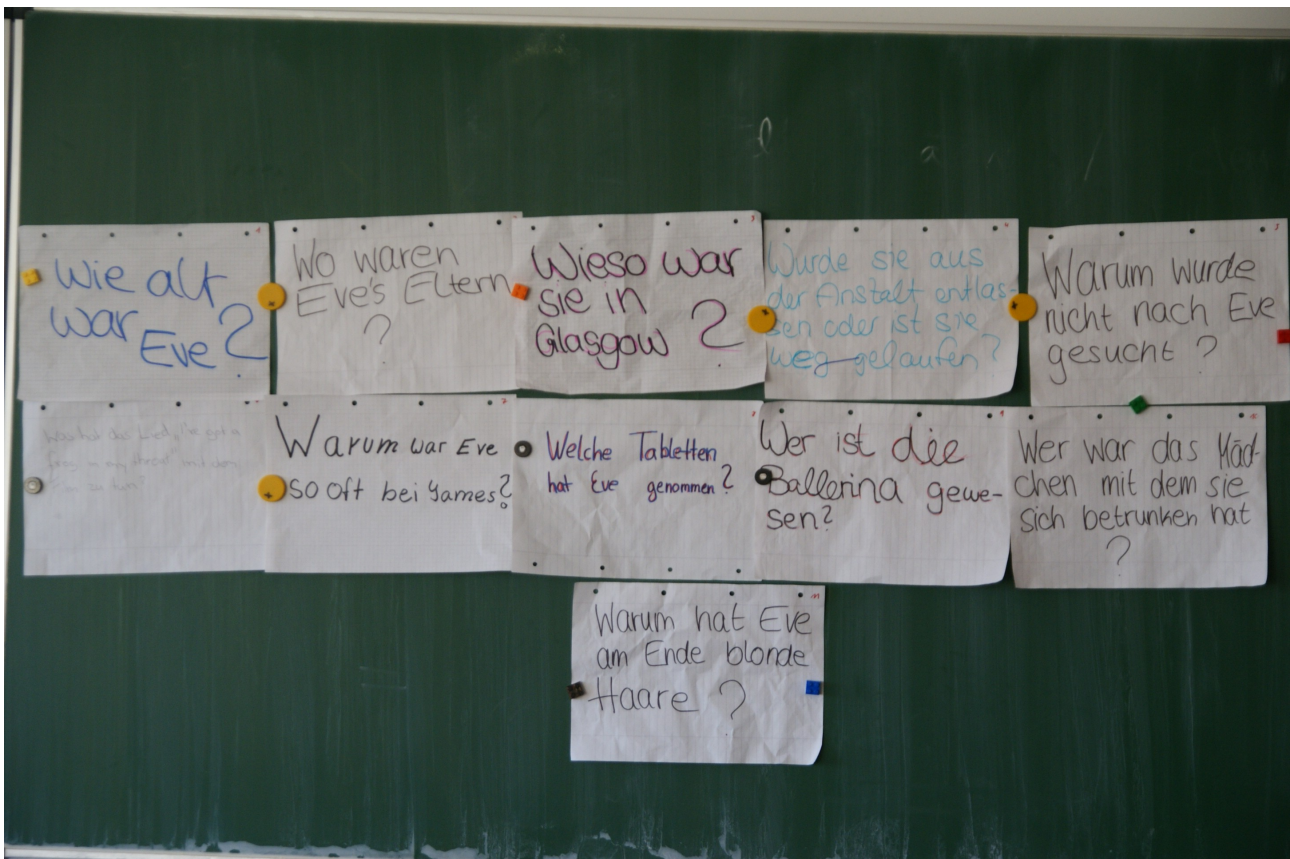 Wie alt
war Eve?
Wo waren
Eve's Eltern
?
Wieso war
sie in
Glasgow?
Wurde sie aus
der Anstalt entlas-
sen oder ist sie
weg-gelaufen?
Warum wurde
nicht nach Eve
gesucht?
Was hat das Lied
frog in my throat
zu tun?
Warum war Eve
so oft bei James?
Welche Tabletten
hat Eve genommen?
Wer ist die
Ballerina gewe-
sen?
Wer war das Mäd-
chen mit dem sie
sich betrunken hat
?
Warum hat Eve
am Ende blonde
Haare?